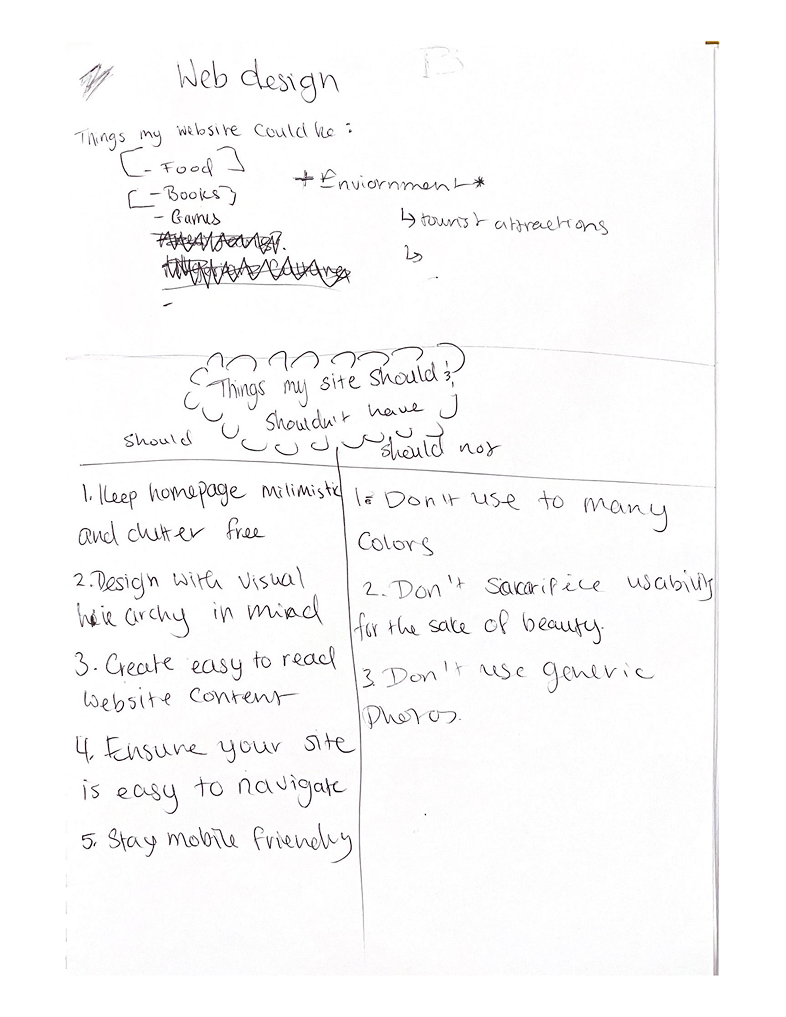 Web design
Things my website could be:
- Food
- Books
- Games
+ Enviornment *
↳ tourist attractions
↳
-
Things my site should &
shouldn't have
should
should not
1. Keep homepage milimistic
and clutter free
2. Design with visual
heirarchy in mind
3. Create easy to read
website content
4. Ensure your site
is easy to navigate
5. Stay mobile friendly
1. Don't use to many
colors
2. Don't sacarifice usability
for the sake of beauty.
3 Don't use generic
photos.